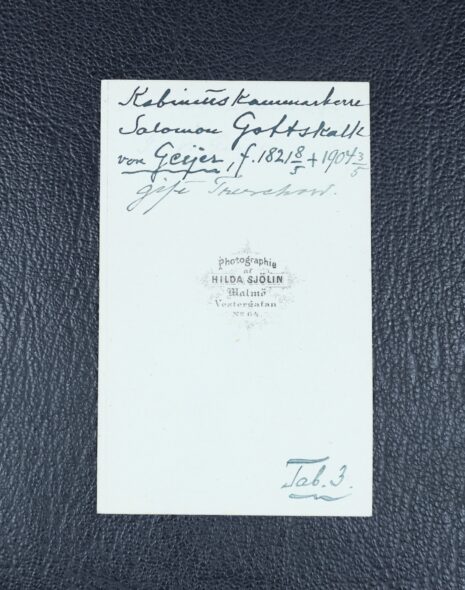 Kabinettskammarherre
Salomon Gottskalk
von Geijer, f. 1821 8/5 + 1904 3/5
gift Treschow.
Photographie
af
HILDA SJÖLIN
Malmö
Vestergatan
No 64
Tab. 3.